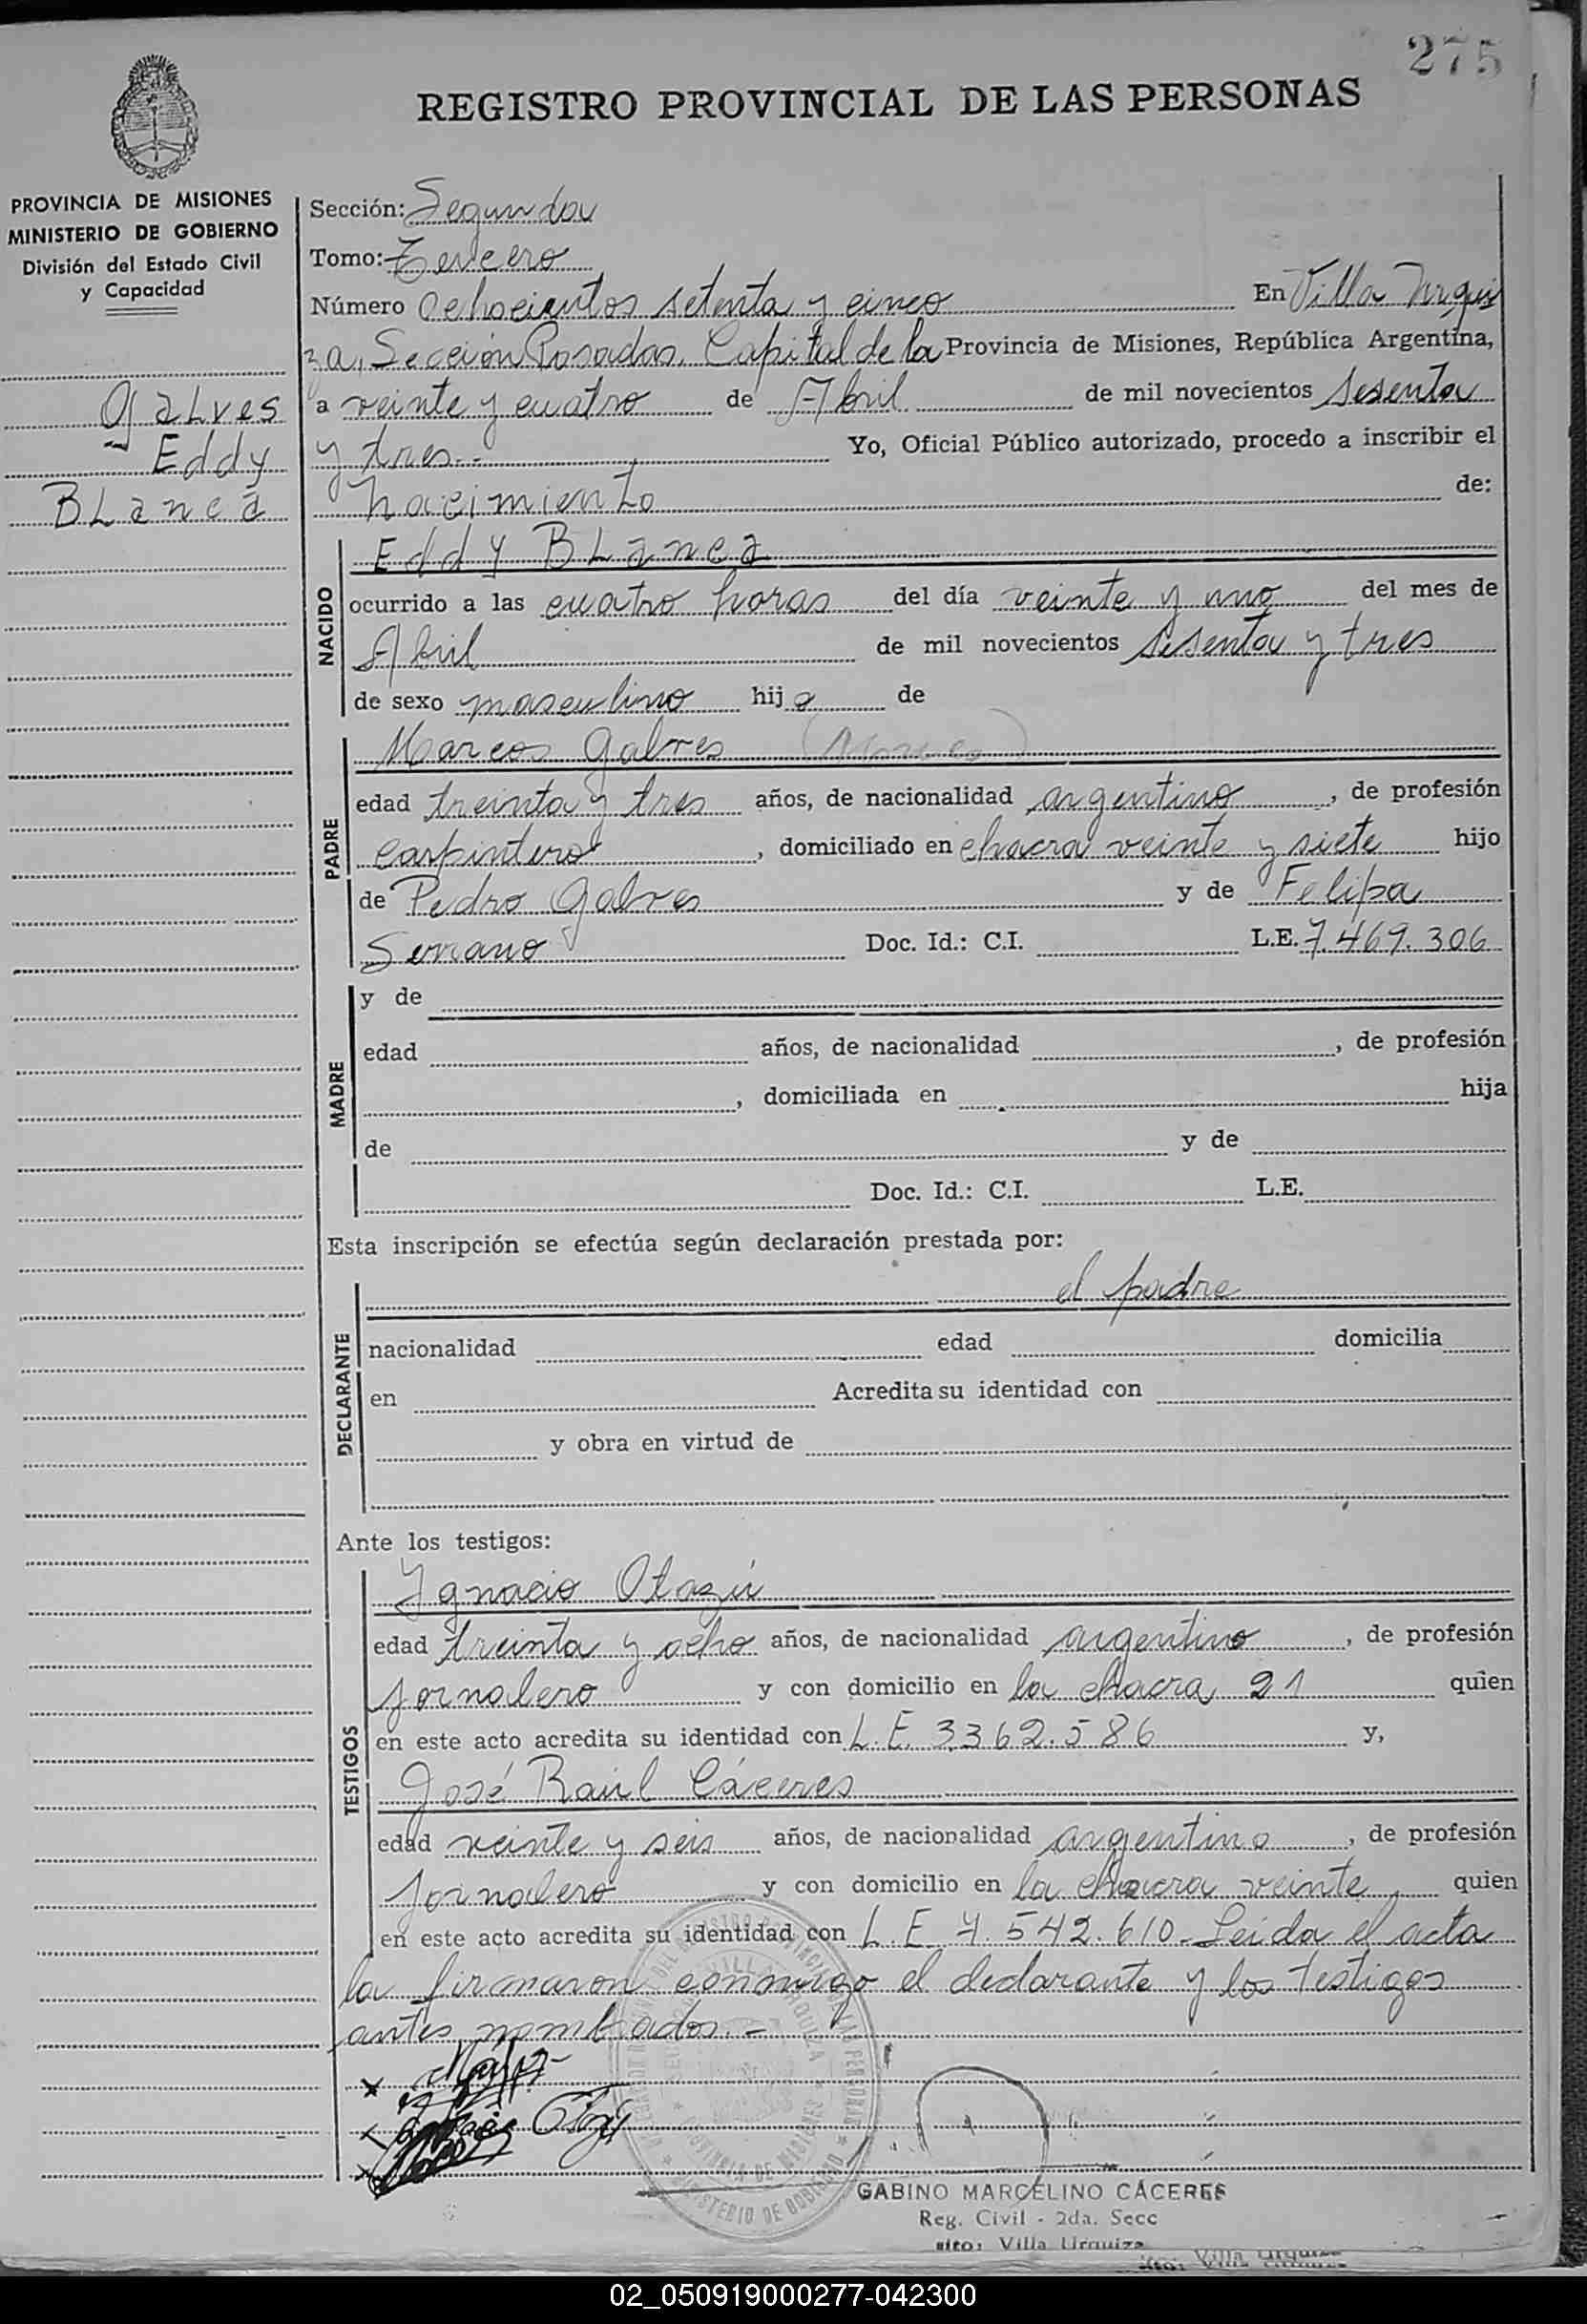 275
REGISTRO PROVINCIAL DE LAS PERSONAS
PROVINCIA DE MISIONES
MINISTERIO DE GOBIERNO
División del Estado Civil
y Capacidad
Galves
Eddy
Blanca
Sección: Segunda
Tomo: Tercero
Número Ochocientos setenta y cinco En Villa Urqui
za, Sección Posadas, Capital de la Provincia de Misiones, República Argentina,
a veinte y cuatro de Abril de mil novecientos sesenta
y tres.- Yo, Oficial Público autorizado, procedo a inscribir el
nacimiento de:
NACIDO
Eddy Blanca
ocurrido a las cuatro horas del día veinte y uno del mes de
Abril de mil novecientos sesenta y tres
de sexo masculino hijo de
PADRE
Marcos Galves
edad treinta y tres años, de nacionalidad argentino, de profesión
carpintero, domiciliado en chacra veinte y siete hijo
de Pedro Galves y de Felipa
Serrano Doc. Id.: C.I. L.E. 7.469.306
MADRE
y de
edad años, de nacionalidad , de profesión
, domiciliada en hija
de y de
Doc. Id.: C.I. L.E.
Esta inscripción se efectúa según declaración prestada por:
DECLARANTE
el padre
nacionalidad edad domicilia
en Acredita su identidad con
y obra en virtud de
Ante los testigos:
TESTIGOS
Ignacio Otazú
edad treinta y ocho años, de nacionalidad argentino, de profesión
jornalero y con domicilio en la chacra 21 quien
en este acto acredita su identidad con L.E. 3362.586 y,
José Raúl Cáceres
edad veinte y seis años, de nacionalidad argentino, de profesión
jornalero y con domicilio en la chacra veinte, quien
en este acto acredita su identidad con L.E 7.542.610.- Leida el acta
la firmaron conmigo el declarante y los testigos
antes nombrados.-
GABINO MARCELINO CÁCERES
Reg. Civil - 2da. Secc
Villa Urquiza
02_050919000277-042300